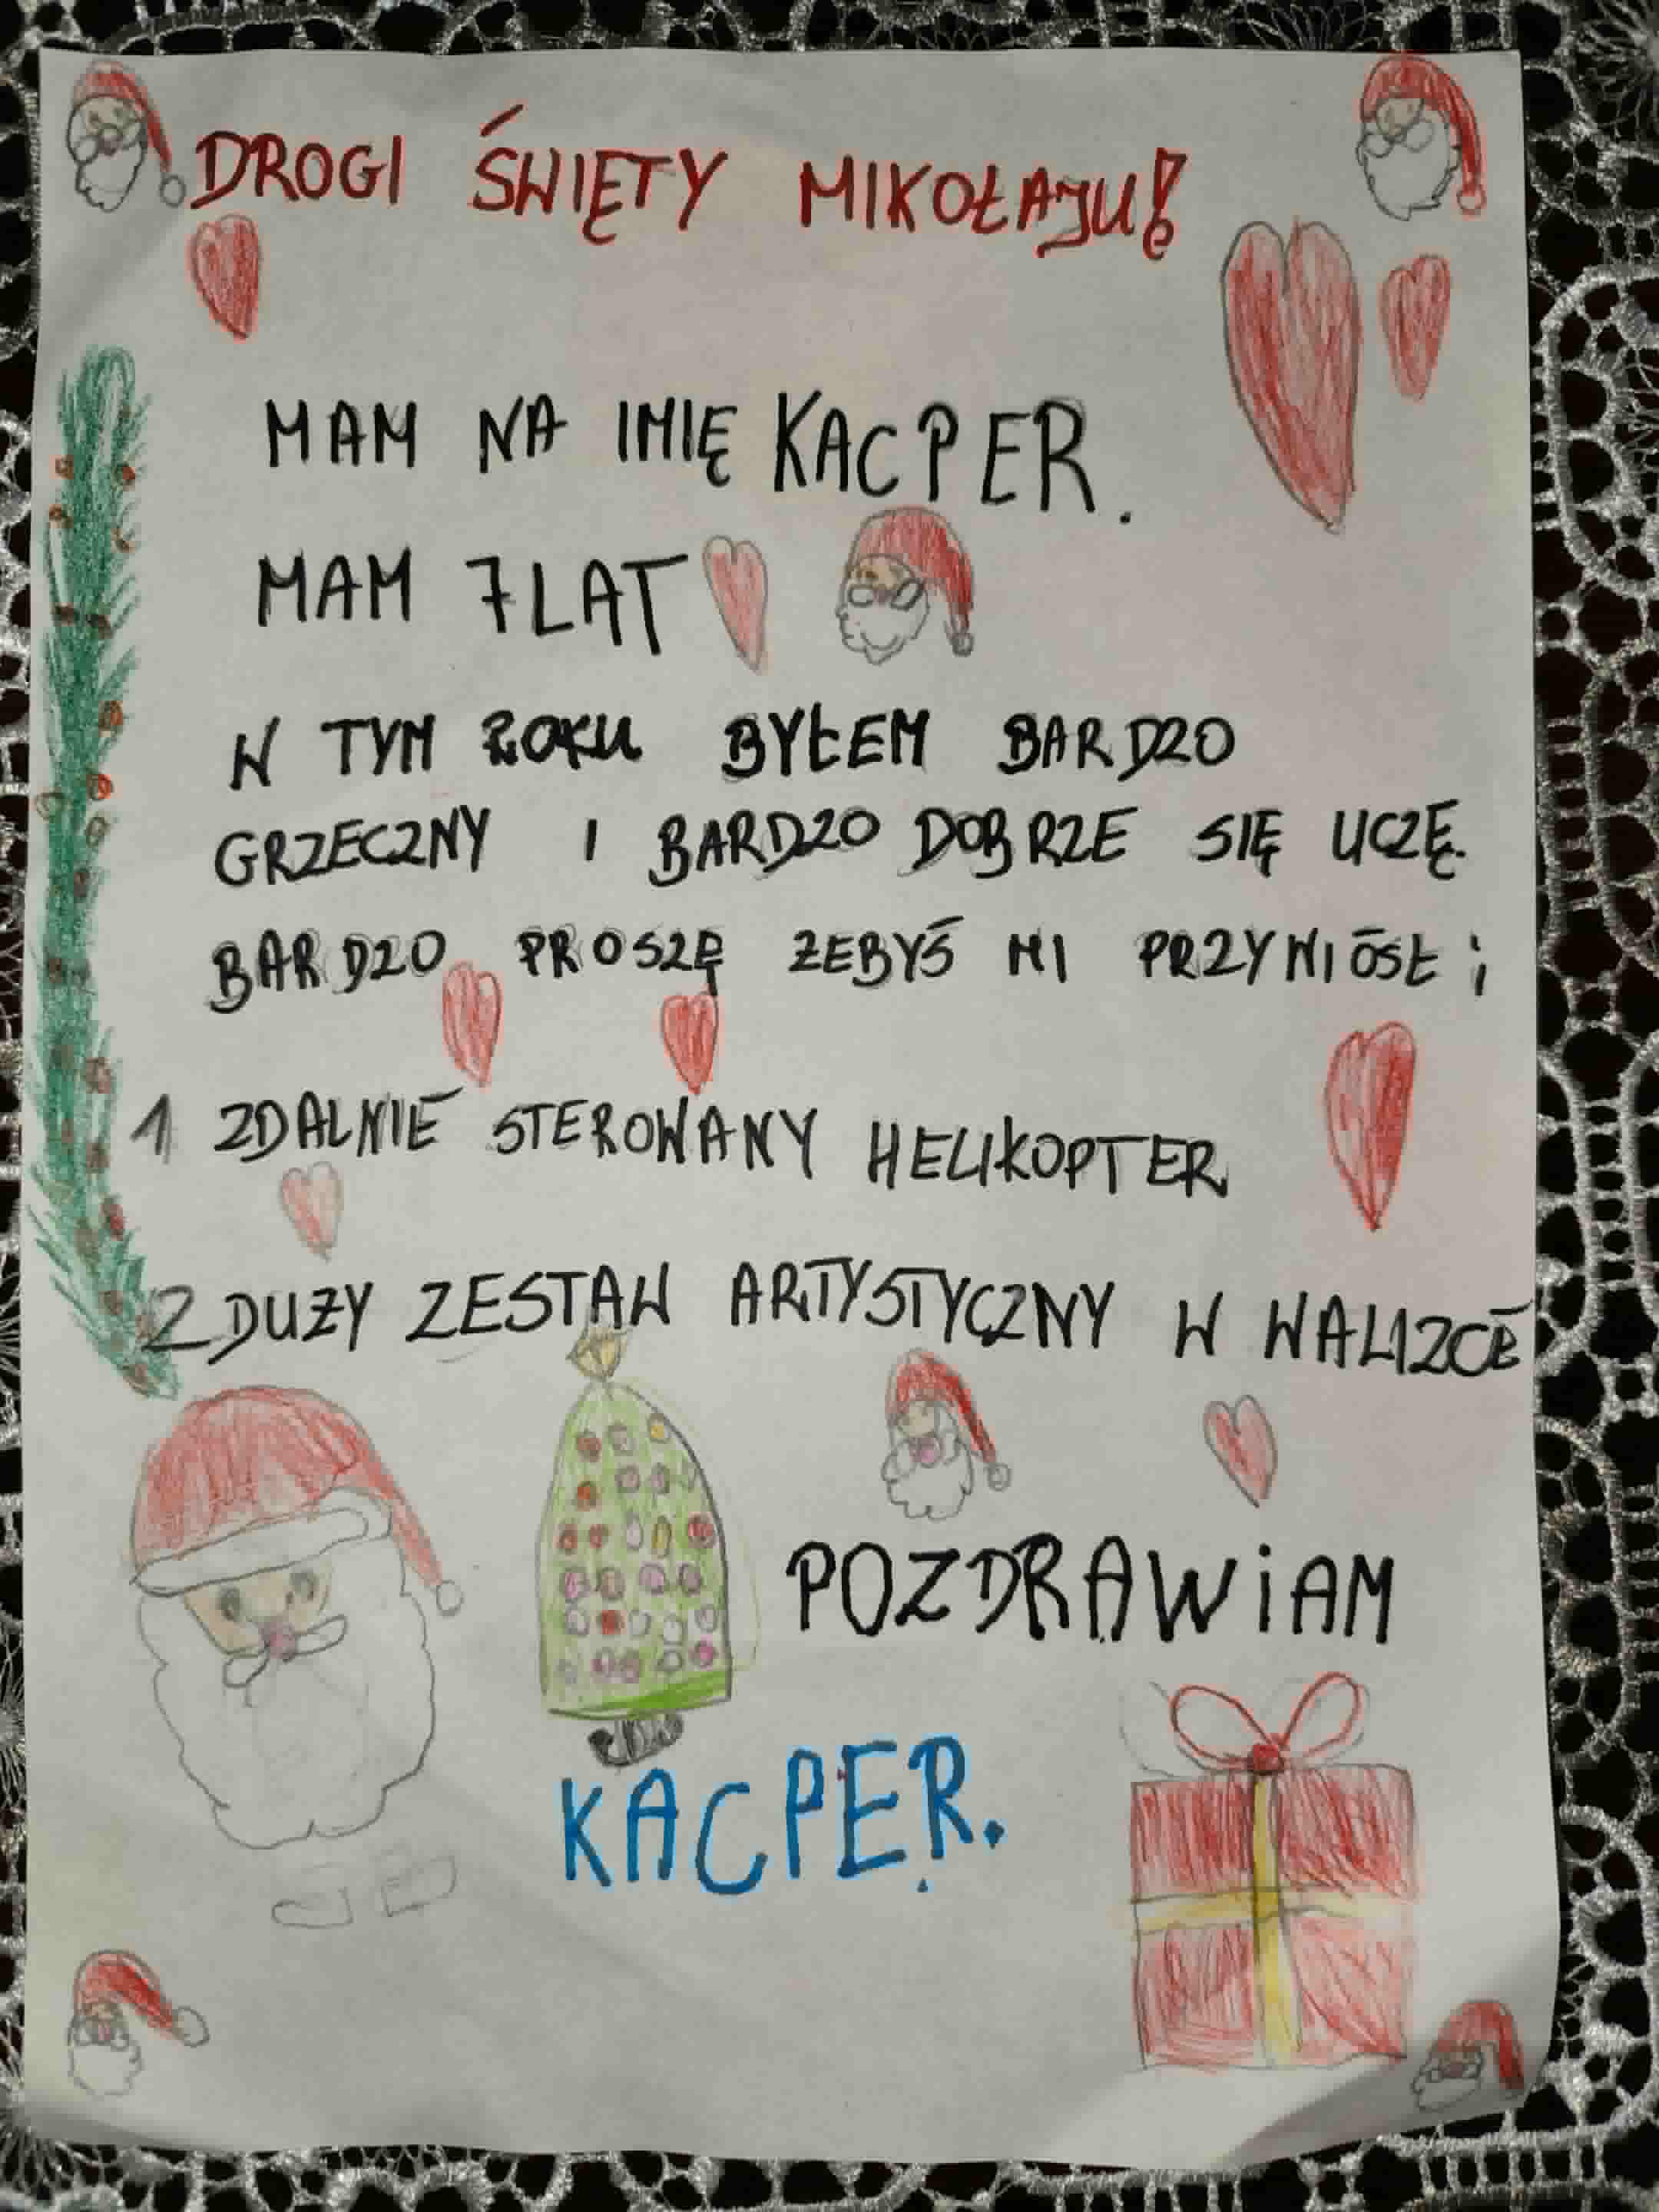 DROGI ŚWIĘTY MIKOŁAJU!
MAM NA IMIĘ KACPER.
MAM 7 LAT
W TYM ROKU BYŁEM BARDZO
GRZECZNY I BARDZO DOBRZE SIĘ UCZĘ.
BARDZO PROSZĘ ŻEBYŚ MI PRZYNIÓSŁ :
1 ZDALNIE STEROWANY HELIKOPTER
2 DUŻY ZESTAW ARTYSTYCZNY W WALIZCE
POZDRAWIAM
KACPER.